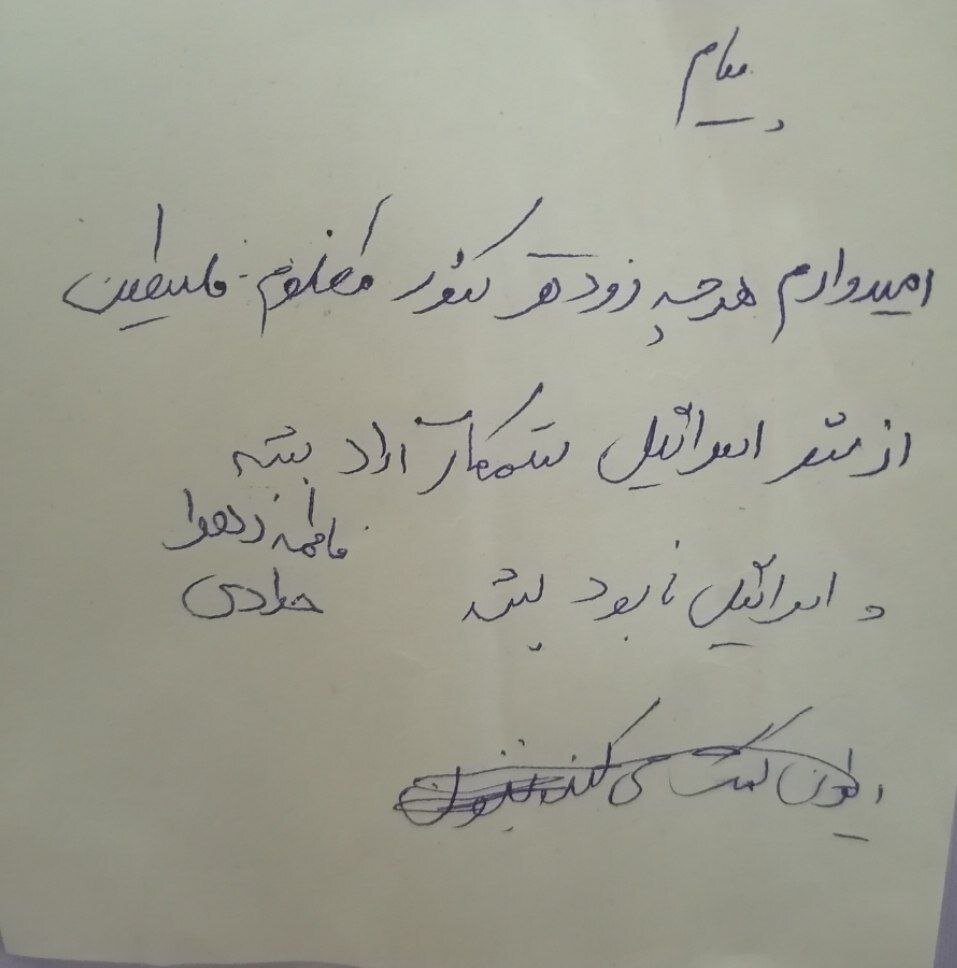 پیام
امیدوارم هر چه زودتر کشور مظلوم فلسطین
از شر اسرائیل ستمکار آزاد بشه
فاطمه زهرا
جوادی
و اسرائیل نابود بشه
ایران کمک می کند